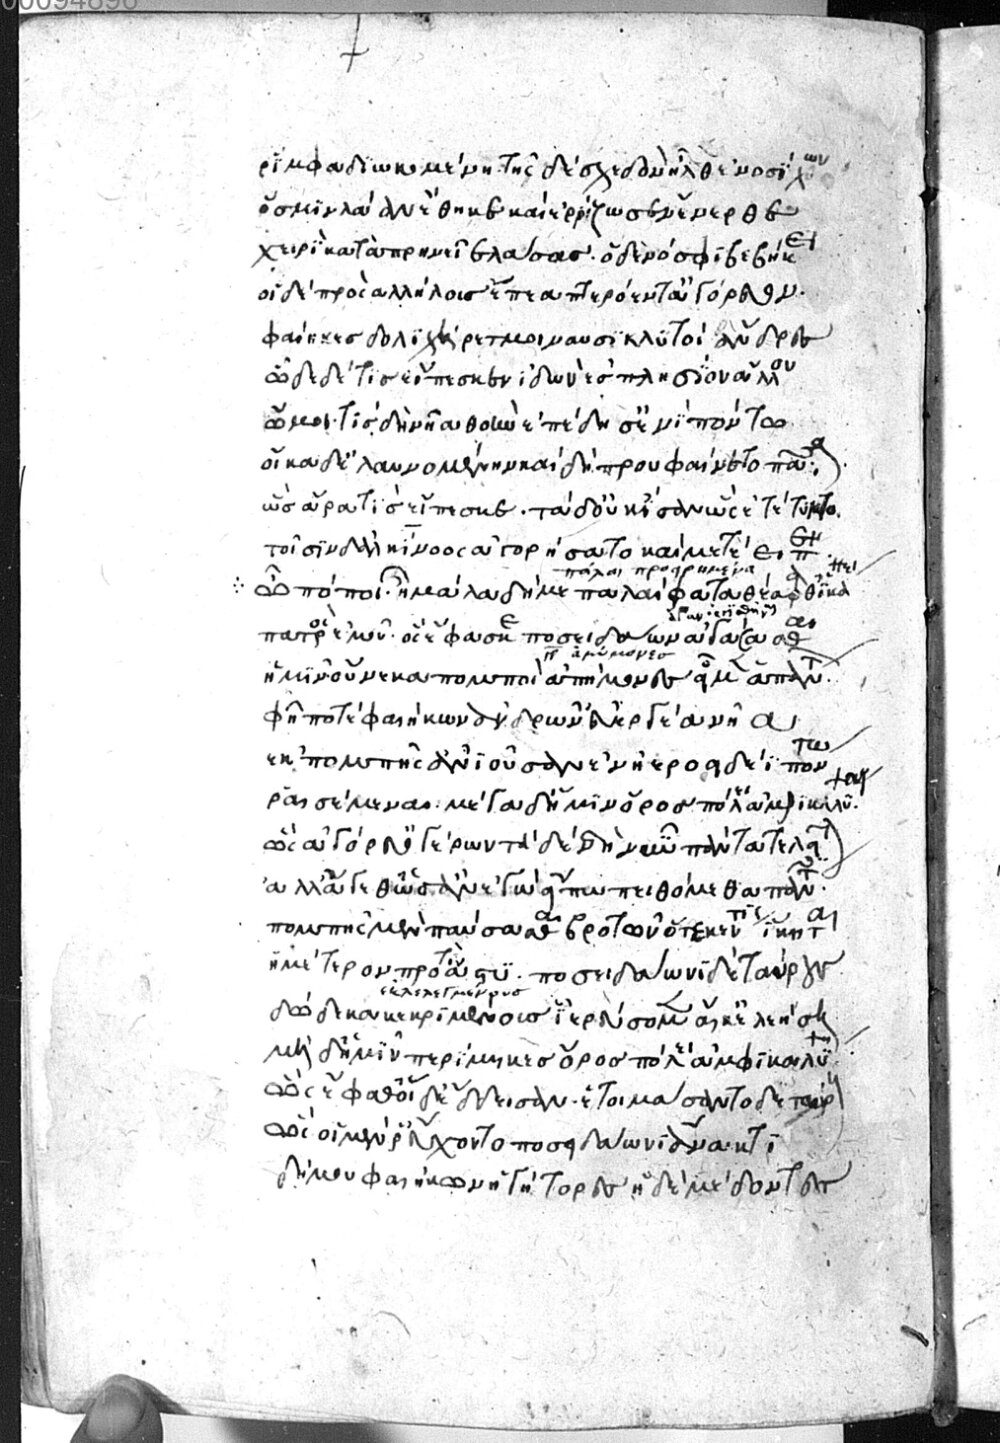 ῥίμφα διωκομένη· τῆς δὲ σχεδὸν ἦλθ' ἐνοσίχθων
ὅς μιν λάαν ἔθηκε καὶ ἐρρίζωσεν ἔνερθε
χειρὶ καταπρηνεῖ ἐλάσας· ὁ δὲ νόσφι βεβήκει
οἱ δὲ πρὸς ἀλλήλους ἔπεα πτερόεντ' ἀγόρευον·
φαίηκες δολιχήρετμοι ναυσίκλυτοι ἄνδρες
ὧδε δέ τις εἴπεσκεν ἰδὼν ἐς πλησίον ἄλλον
ὤμοι· τίς δὴ νῆα θοὴν ἐπέδησ' ἐνὶ πόντω
οἴκαδ' ἐλαυνομένην καὶ δὴ προυφαίνετο πᾶσα·
ὣς ἄρα τίς εἴπεσκε· τὰ δ' οὐκ ἴσαν ὡς ἐτέτυκτο.
τοῖσιν δ' ἀλκίνοος ἀγορήσατο καὶ μετέειπεν·
πάλαι προειρημένα
ὢ πόποι· ἦ μάλα δή με παλαίφατα θέσφαθ' ἱκάνει
πατρὸς ἐμοῦ· ὃς ἔφασκε ποσειδάων' ἀγάσασθαι
ἀμύμονες
ἡμῖν οὕνεκα πομποὶ ἀπήμονές εἰμεν ἁπάντων·
φῆ ποτὲ φαιήκων ἀνδρῶν εὐεργέα νῆα
ἐκ πομπῆς ἀνιοῦσαν ἐν ἠεροειδέϊ πόντω
ῥαισέμεναι· μέγα δ' ἧμιν ὄρος πόλει ἀμφικαλύψειν·
ὣς ἀγόρευ' ὁ γέρων τὰ δὲ δὴ νῦν πάντα τελεῖται
ἀλλ' ἄγεθ' ὡς ἂν ἐγὼ εἴπω πειθόμεθα πάντες·
πομπῆς μὲν παύσασθαι βροτῶν ὅτε κέν τις ἵκηται
ἡμέτερον προτὶ ἄστυ· ποσειδάωνι δὲ ταύρους
ἐκλελεγμένους
δώδεκα κεκριμένους ἱερεύσομεν αἴ κ' ἐλεήσῃ
μηδ' ἧμιν περίμηκες ὄρος πόλει ἀμφικαλύψῃ·
ὣς ἔφαθ' οἱ δ' ἔδεισαν· ἑτοιμάσαντο δὲ ταύρους
ὣς οἱ μέν ῥ' εὔχοντο ποσειδάωνι ἄνακτι
δήμου φαιήκων ἡγήτορες ἠδὲ μέδοντες